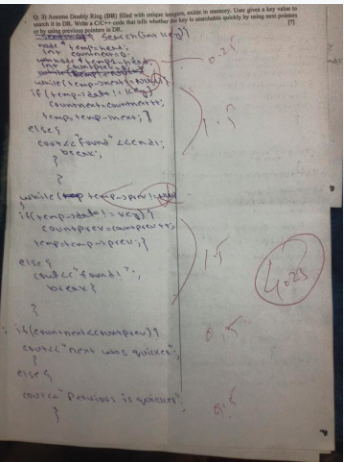 Q: 3) Assume Doubly Ring (DR) filled with unique integers, exists in memory. User gives a key value to
search it in DR. Write a C/C++ code that tells whether the key is searchable quickly by using next pointers
or by using previous pointers in DR. [7]
search(int key){
node* temp=head;
int countnext=0;
0.25
while(temp->next
if(temp->data!=key){
countnext=countnext++;
temp=temp->next;}
1.5
else{
cout<<"found"<<endl;
break;
}
}
while(temp->prev!=
if(temp->data!=key){
countprev=countprev++;
temp=temp->prev;}
1.5
else{
cout<<"found!";
break}
4.25
}
if(countnext<countprev){
0.5
cout<<"next was quicker";
}
else{
cout<<"Previous is quicker";
0.5
}